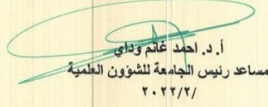 أ. د. احمد غانم وداي
مساعد رئيس الجامعة للشؤون العلمية
٢٠٢٢/٢/